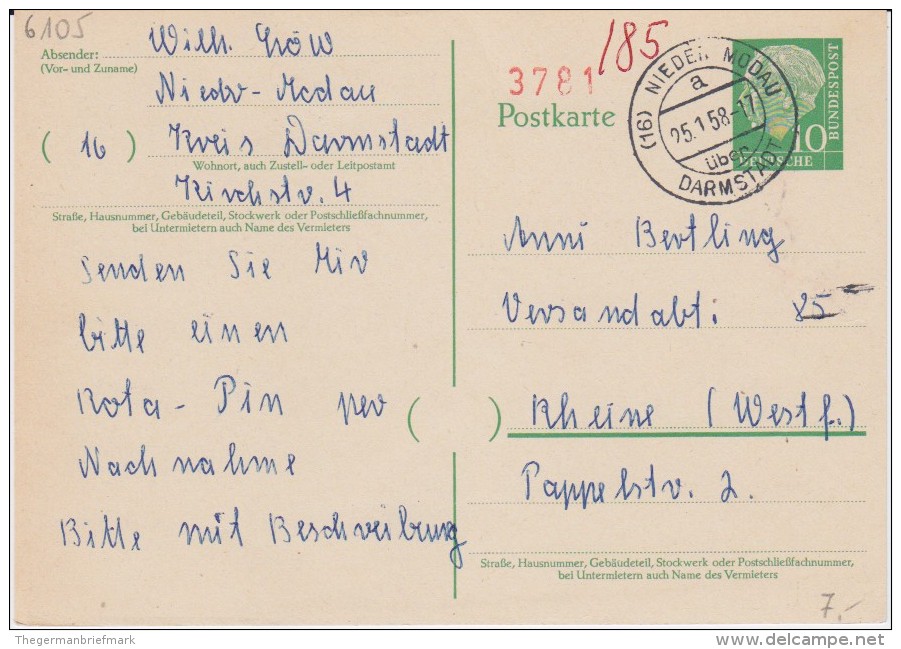 6105
Absender: Wilh. Löw
(Vor- und Zuname)
Nieder-Modau
(16) Kreis Darmstadt
Wohnort, auch Zustell- oder Leitpostamt
Kirchstr. 4
Straße, Hausnummer, Gebäudeteil, Stockwerk oder Postschließfachnummer,
bei Untermietern auch Name des Vermieters
Senden Sie Mir
bitte einen
Rota-Pin per
Nachnahme
Bitte mit Beschreibung
3781 /85
Postkarte
(16) NIEDER MODAU
a
25.1.58-17
über
DARMSTADT
10
DEUTSCHE
BUNDESPOST
Anni Bertling
Versandabt: 85
( ) Rheine (Westf.)
Pappelstr. 2.
Straße, Hausnummer, Gebäudeteil, Stockwerk oder Postschließfachnummer,
bei Untermietern auch Name des Vermieters
7.-
Thegermanbriefmark
delcampe.net